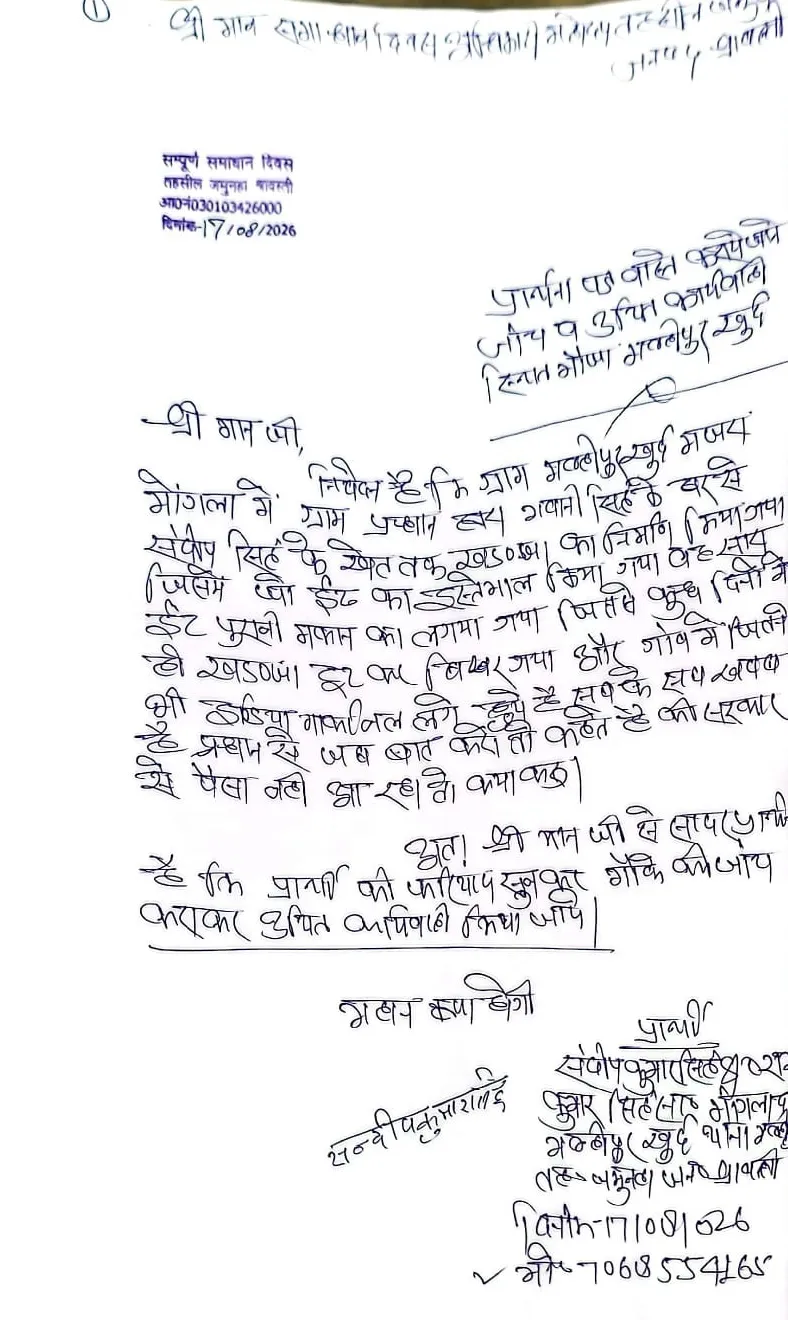 1
श्री मान समाधान दिवस अधिकारी महोदय तहसील
जनपद श्रावस्ती
सम्पूर्ण समाधान दिवस
तहसील जमुनहा श्रावस्ती
आ0नं030103426000
दिनांक-17/08/2026
प्रार्थना पत्र वास्ते कराये जाने
जांच व उचित कार्यवाही
स्थित मौजा मल्हीपुर खुर्द
श्री मान जी,
निवेदन है कि ग्राम मल्हीपुर खुर्द मजरा
मांगला में ग्राम प्रधान द्वारा भवानी सिंह के घर से
संदीप सिंह के खेत तक खडण्जा का निर्माण किया गया
जिसमें जो ईंट का इस्तेमाल किया गया वह सारा
ईंट पुरानी मकान का लगाया गया जिससे कुछ दिनों में
ही खडण्जा टूट कर बिखर गया और गांव में जितने
भी इंडिया मार्का नल लगे हुये है सब के सब खराब
है प्रधान से जब बात करो तो कहते है की सरकार
से पैसा नही आ रहा तो क्या करू।
अतः श्री मान जी से सादर प्रार्थना
है कि प्रार्थी की फरियाद सुनकर मौके की जांच
कराकर उचित कार्यवाही किया जाये।
महान कृपा होगी
प्रार्थी
संदीप कुमार सिंह
कुमार सिंह सा0 मांगला
मल्हीपुर खुर्द थाना
तह0 जमुनहा जन0 श्रावस्ती
सन्दीप कुमार सिंह
दिनांक-17/08/026
मो0 7068554165